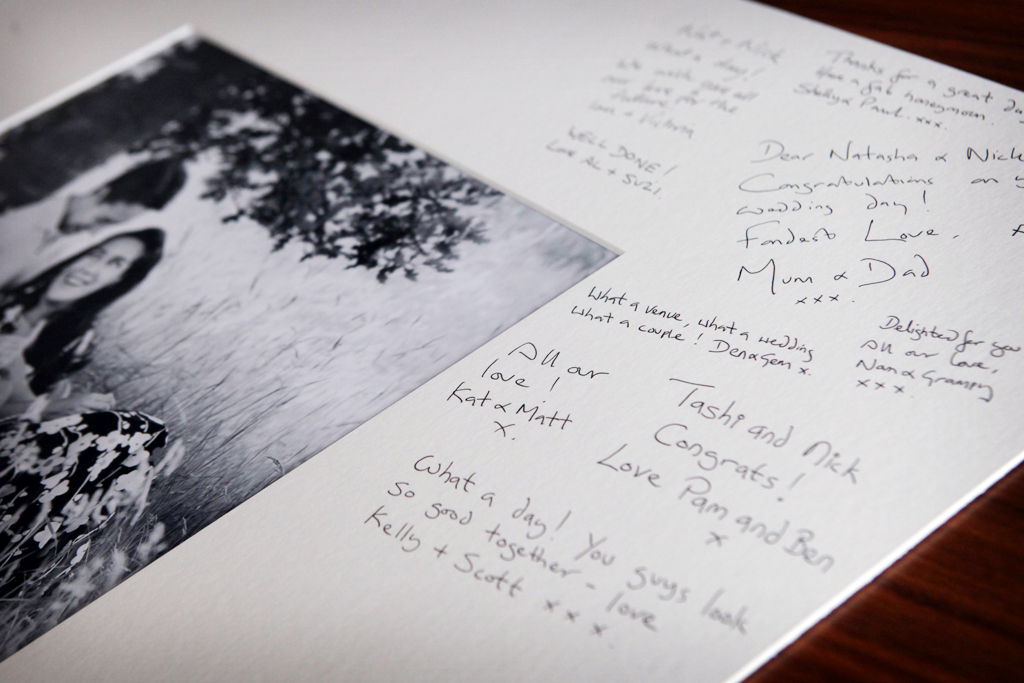 Nat & Nick
What a day!
We wish you all
our love for the
future.
Ian & Victoria
WELL DONE!
Love AL + SUZI.
Thanks for a great
Have a fab honeymoon.
Shelly & Paul. xxx.
Dear Natasha & Nick
Congratulations on
wedding day!
Fondest Love.
Mum & Dad
xxx.
What a venue, what a wedding
what a couple! Den & Gem x.
Delighted for you
All our love,
Nan & Grampy
xxx.
All our
love!
Kat & Matt
x.
Tashi and Nick
Congrats!
Love Pam and Ben
x
What a day! You guys look
so good together - love
Kelly + Scott xxx.